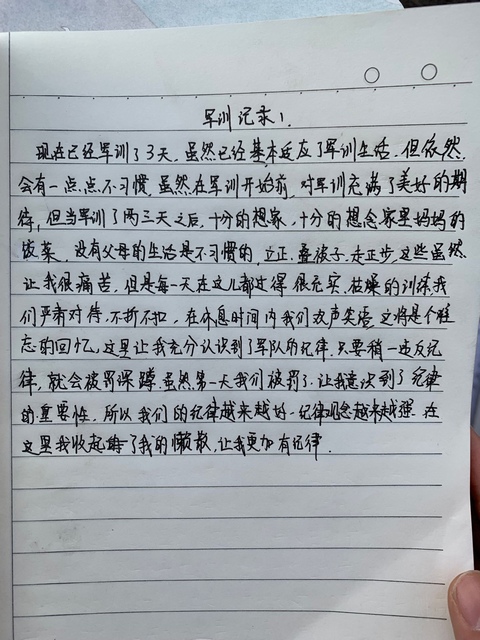 军训记录1.
现在已经军训了3天,虽然已经基本适应了军训生活,但依然
会有一点点不习惯,虽然在军训开始前,对军训充满了美好的期
待,但当军训了两三天之后,十分的想家,十分的想念家里妈妈的
饭菜,没有父母的生活是不习惯的,立正、叠被子、走正步,这些虽然
让我很痛苦,但是每一天在这儿都过得很充实,枯燥的训练,我
们严肃对待,不折不扣,在休息时间内我们欢声笑语,这将是个难
忘的回忆,这里让我充分认识到了军队的纪律,只要稍一违反纪
律,就会被罚深蹲,虽然第一天我们被罚了,让我意识到了纪律
的重要性,所以我们的纪律越来越好,纪律观念越来越强,在
这里我收起了我的懒散,让我更加有纪律.